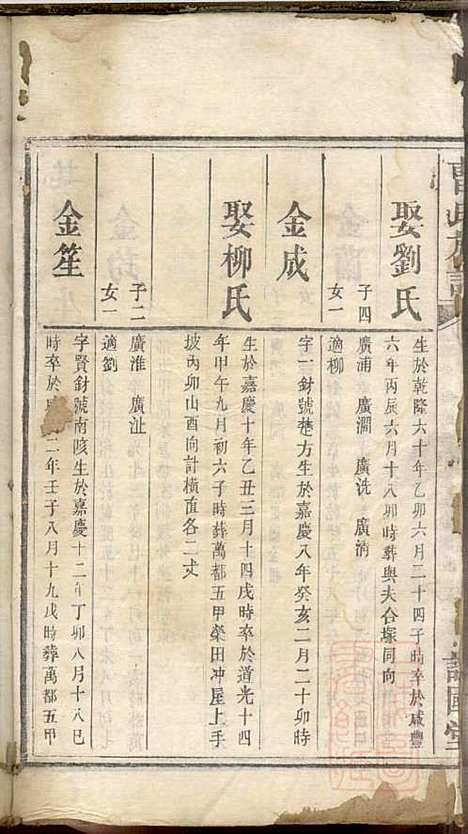 曹氏族譜
娶劉氏
生於乾隆六十年乙卯六月二十四子時卒於咸豐
六年丙辰六月十八卯時葬與夫合塚同向
子四
廣浦 廣澗 廣洗 廣漪
女一
適柳
金成
字一封號楚方生於嘉慶八年癸亥二月二十卯時
娶柳氏
生於嘉慶十年乙丑三月十四戌時卒於道光十四
年甲午九月初六子時葬萬都五甲榮田冲屋上手
坡內卯山酉向計橫直各二丈
子二
廣淮 廣沚
女一
適劉
金笙
字賢封號南陔生於嘉慶十二年丁卯八月十八巳
時卒於二年壬子八月十九戌時葬萬都五甲